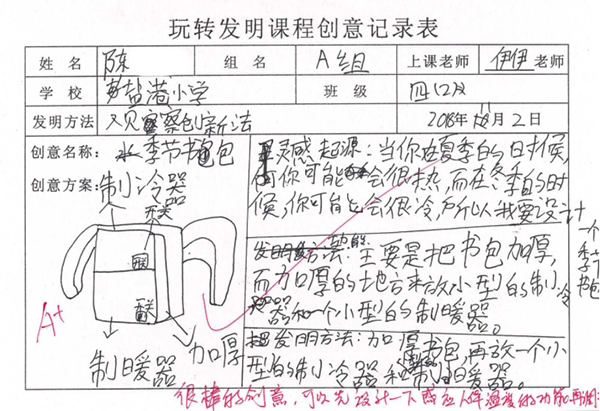 玩转发明课程创意记录表
姓 名 陈 组 名 A组 上课老师 伊伊老师
学 校 盐港小学 班 级 四(2)
发明方法 观察创新法 2018年 月2日
创意名称: 季节书包
创意方案:
制冷器
开关
开关
制暖器
加厚
A+
灵感起源:当你在夏季的时候,
你可能会很热,而在冬季的时
候,你可能会很冷,所以我要设计
一个季节书包
发明方法:主要是把书包加厚,
而加厚的地方来放小型的制冷
器和一个小型的制暖器。
把发明方法:加厚书包,再放一个小
型的制冷器和制暖器。
很棒的创意,可以先设计一下感应人体温度的功能再调